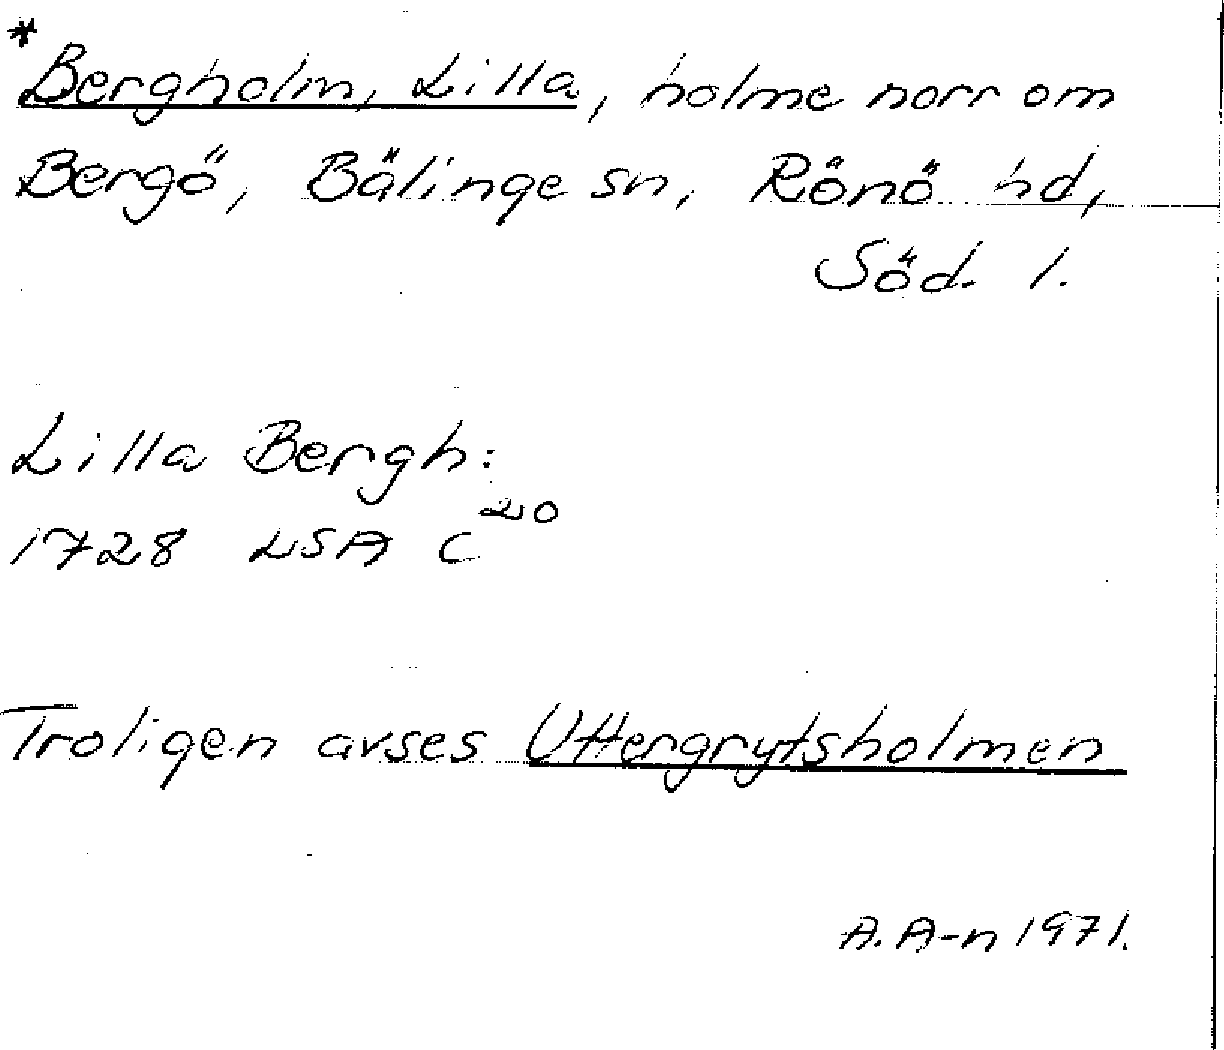 *
Bergholm, Lilla, holme norr om
Bergö, Bälinge sn, Rönö hd,
Söd. l.
Lilla Bergh:
1728 LSA C²⁰
Troligen avses Uttergrytsholmen
A. A-n 1971.